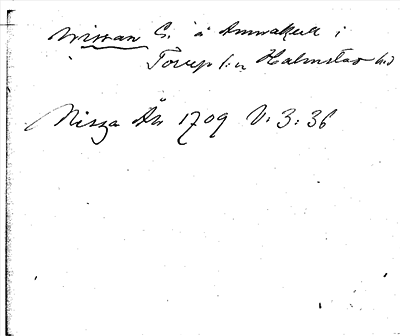 Nissan S. å Annakull i
Torup s:n Halmstad h:d
Nissa Åh 1709 V: 3: 36